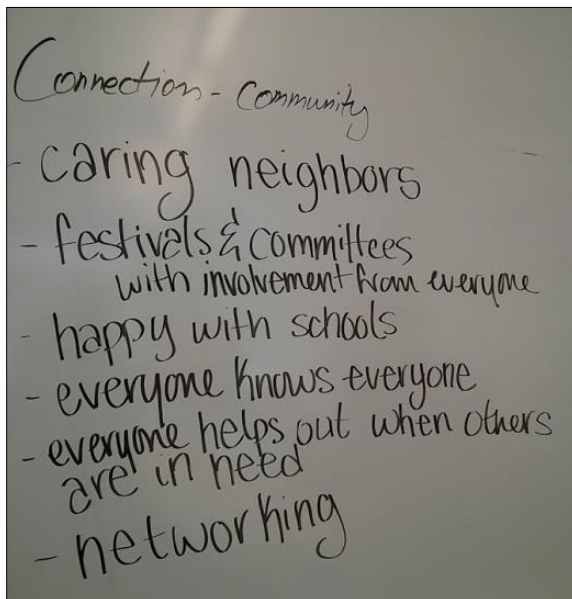 Connection - Community
- caring neighbors
- festivals & committees
with involvement from everyone
- happy with schools
- everyone knows everyone
- everyone helps out when others
are in need
- networking